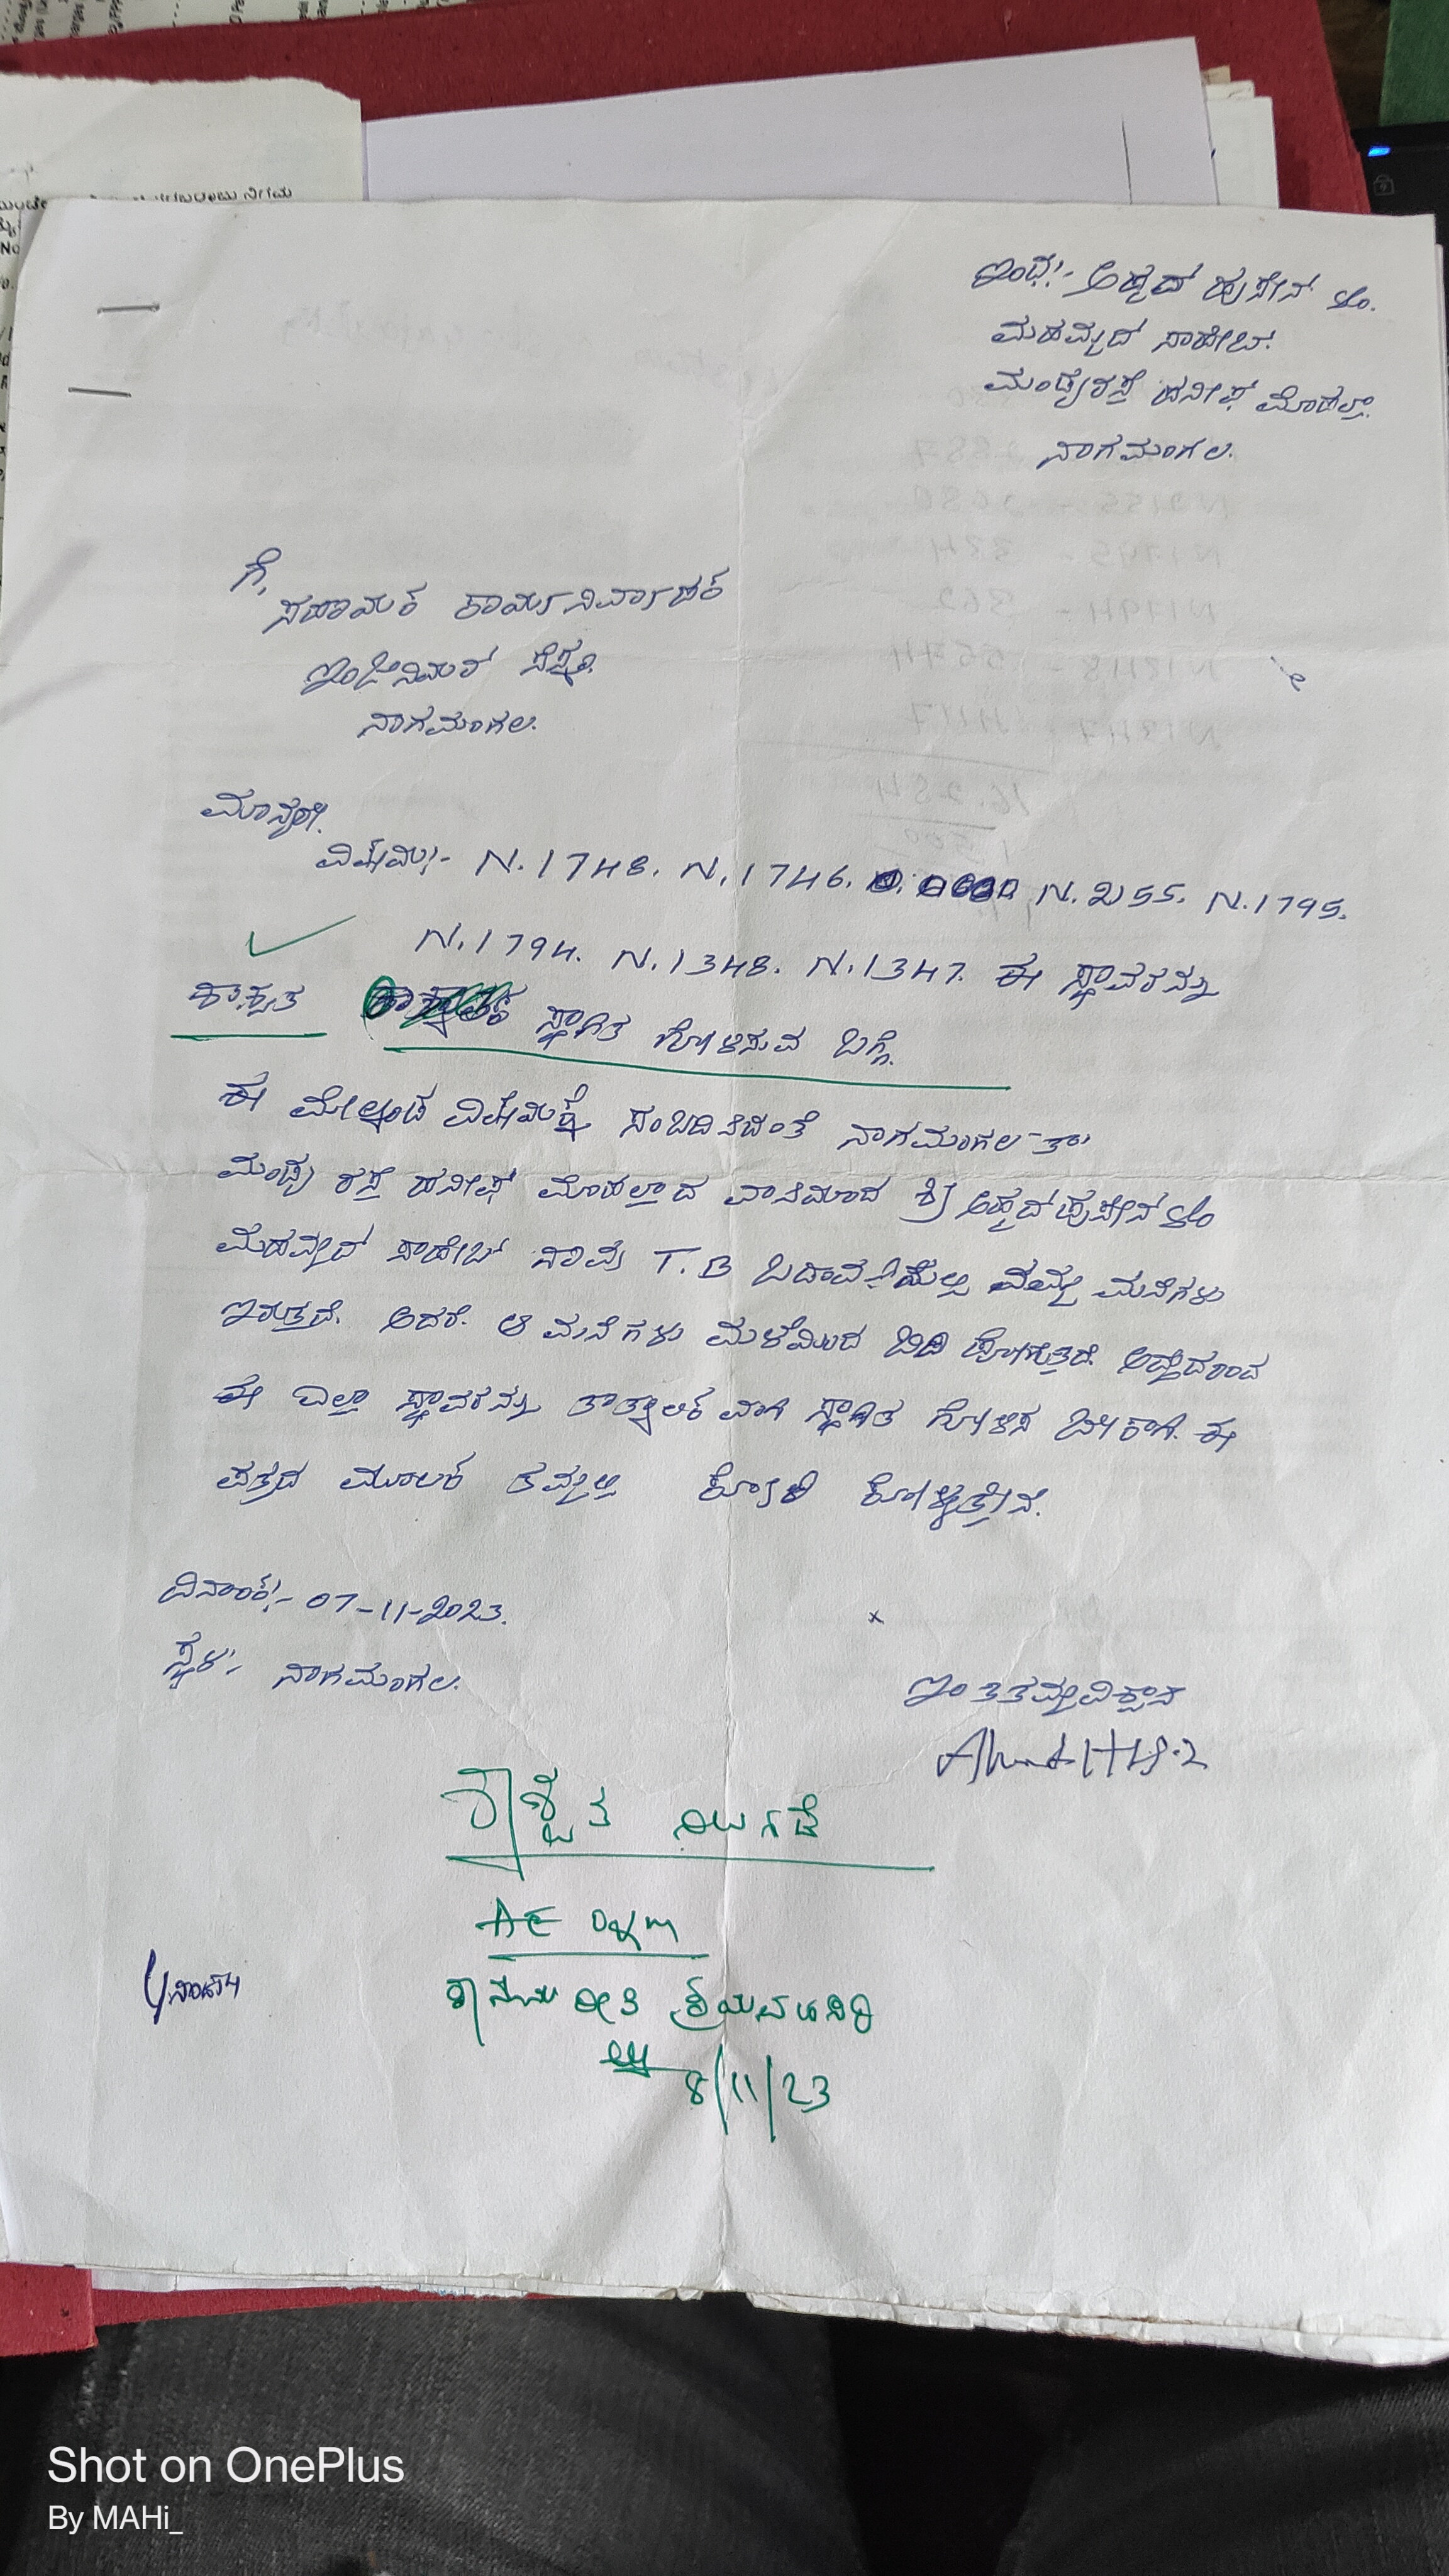 ಇಂದ:- ಅಹ್ಮದ್ ಹುಸೇನ್ ಬಿಂ.
ಮಹಮ್ಮದ್ ಸಾಹೇಬ್.
ಮಂಡ್ಯರಸ್ತೆ ಹನೀಫ್ ಮೊಹಲ್ಲಾ.
ನಾಗಮಂಗಲ.
ಗೆ,
ಸಹಾಯಕ ಕಾರ್ಯನಿರ್ವಾಹಕ
ಇಂಜಿನಿಯರ್ ಸೆಸ್ಕಾಂ.
ನಾಗಮಂಗಲ.
ಮಾನ್ಯರೇ.
ವಿಷಯ:- N.1748. N.1746. N.2155. N.1795.
N.1794. N.1348. N.1347. ಈ ಸ್ಥಾವರನ್ನು
ಶಾಶ್ವತ ಸ್ಥಾಗಿತ ಗೋಳಿಸುವ ಬಗ್ಗೆ.
ಈ ಮೇಲ್ಕಂಡ ವಿಷಯಕ್ಕೆ ಸಂಬದಿಸಿದಂತೆ ನಾಗಮಂಗಲ-ತಾ
ಮಂಡ್ಯ ರಸ್ತೆ ಹನೀಫ್ ಮೊಹಲ್ಲಾದ ವಾಸಿಯಾದ ಶ್ರೀ ಅಹ್ಮದ್ ಹುಸೇನ್ ಬಿಂ
ಮಹಮ್ಮದ್ ಸಾಹೇಬ್ ನಾವು T.B ಬಡಾವಣೆಯಲ್ಲಿ ನಮ್ಮ ಮನೆಗಳು
ಇರುತ್ತದೆ. ಅದರೆ. ಆ ಮನೆಗಳು ಮಳೆಯಿಂದ ಬಿದಿ ಹೋಗುತ್ತದೆ. ಅದ್ದದರಿಂದ
ಈ ಎಲ್ಲಾ ಸ್ಥಾವರನ್ನು ತಾತ್ಕಾಲಿಕ ವಾಗಿ ಸ್ಥಾಗಿತ ಗೋಳಿಸ ಬೇಕಾಗಿ. ಈ
ಪತ್ರದ ಮೂಲಕ ತಮ್ಮಲ್ಲಿ ಕೋರಿ ಕೋಳ್ಳುತ್ತೇನೆ.
ದಿನಾಂಕ:- 07-11-2023.
ಸ್ಥಳ:- ನಾಗಮಂಗಲ.
ಇಂತಿ ತಮ್ಮ ವಿಶ್ವಾಸಿ
ಶಾಶ್ವತ ನಿಲುಗಡೆ
AE O&M
ಕಾನೂನು ರೀತಿ ಕ್ರಮವಹಿಸಿರಿ
8/11/23
Shot on OnePlus
By MAHi_